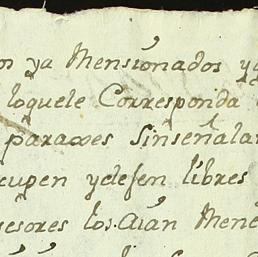 on ya Mensionados y
loquele Corresponda
paraxes Sinseñalar
cupen ydejen libres
sesores los.Aián Mene